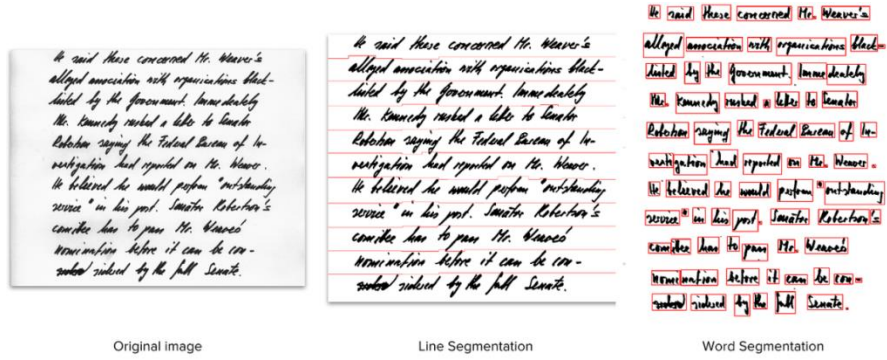 He said these concerned Mr. Weaver's
alleged association with organisations black-
listed by the Government. Immediately
Mr. Kennedy rushed a letter to Senator
Robertson saying the Federal Bureau of In-
vestigation had reported on Mr. Weaver.
He believed he would perform "outstanding
service" in his post. Senator Robertson's
comittee has to pass Mr. Weaver's
nomination before it can be con-
sidered by the full Senate.
Original image
He said these concerned Mr. Weaver's
alleged association with organisations black-
listed by the Government. Immediately
Mr. Kennedy rushed a letter to Senator
Robertson saying the Federal Bureau of In-
vestigation had reported on Mr. Weaver.
He believed he would perform "outstanding
service" in his post. Senator Robertson's
comittee has to pass Mr. Weaver's
nomination before it can be con-
sidered by the full Senate.
Line Segmentation
He said these concerned Mr. Weaver's
alleged association with organisations black-
listed by the Government. Immediately
Mr. Kennedy rushed a letter to Senator
Robertson saying the Federal Bureau of In-
vestigation had reported on Mr. Weaver.
He believed he would perform "outstanding
service" in his post. Senator Robertson's
comittee has to pass Mr. Weaver's
nomination before it can be con-
sidered by the full Senate.
Word Segmentation